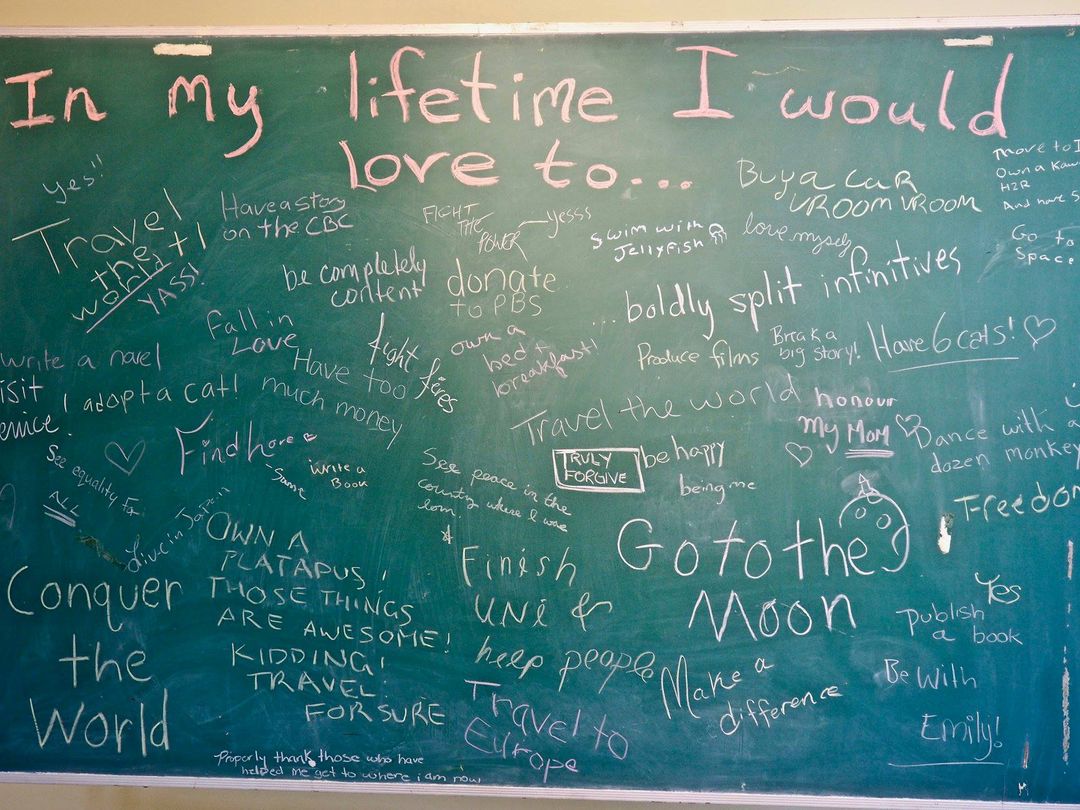 In my lifetime I would
love to...
yes!!
Travel
the
world!
YASS!
Have a story
on the CBC
FIGHT
THE
POWER
yesss
Swim with
Jellyfish
love myself
Buy a car
VROOM VROOM
move to
Own a
H2R
And have
Go to
Space
be completely
content
donate
to PBS
...boldly split infinitives
Fall in
Love
fight fires
own a
bed &
breakfast!
Produce films
Break a
big story!
Have 6 cats!
write a novel
Have too
much money
adopt a cat!
Travel the world
honour
my MOM
Dance with a
dozen monkey
Find hope
- Same
write a
Book
See equality for
ALL
See peace in the
country where I was
born.
TRULY
FORGIVE
be happy
being me
Freedom
Live in Japan
OWN A
PLATAPUS!
THOSE THINGS
ARE AWESOME!
KIDDING!
TRAVEL
FOR SURE
Conquer
the
World
Finish
UNI &
help people
Go to the
Moon
Yes
Publish
a book
Make a
difference
Be With
Emily!
Travel to
Europe
Properly thank those who have
helped me get to where i am now